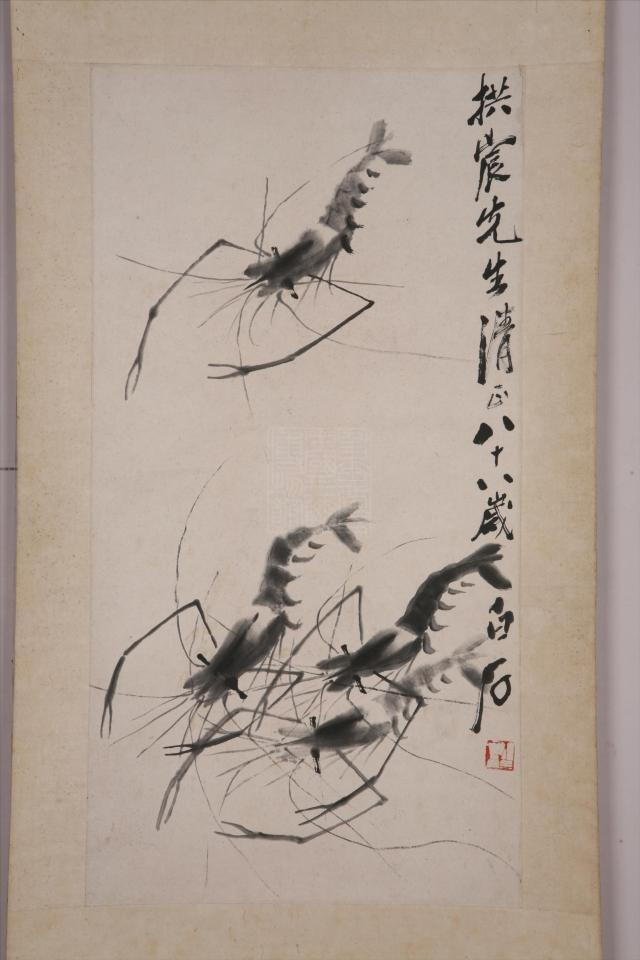 拱宸先生清正八十八歲白石